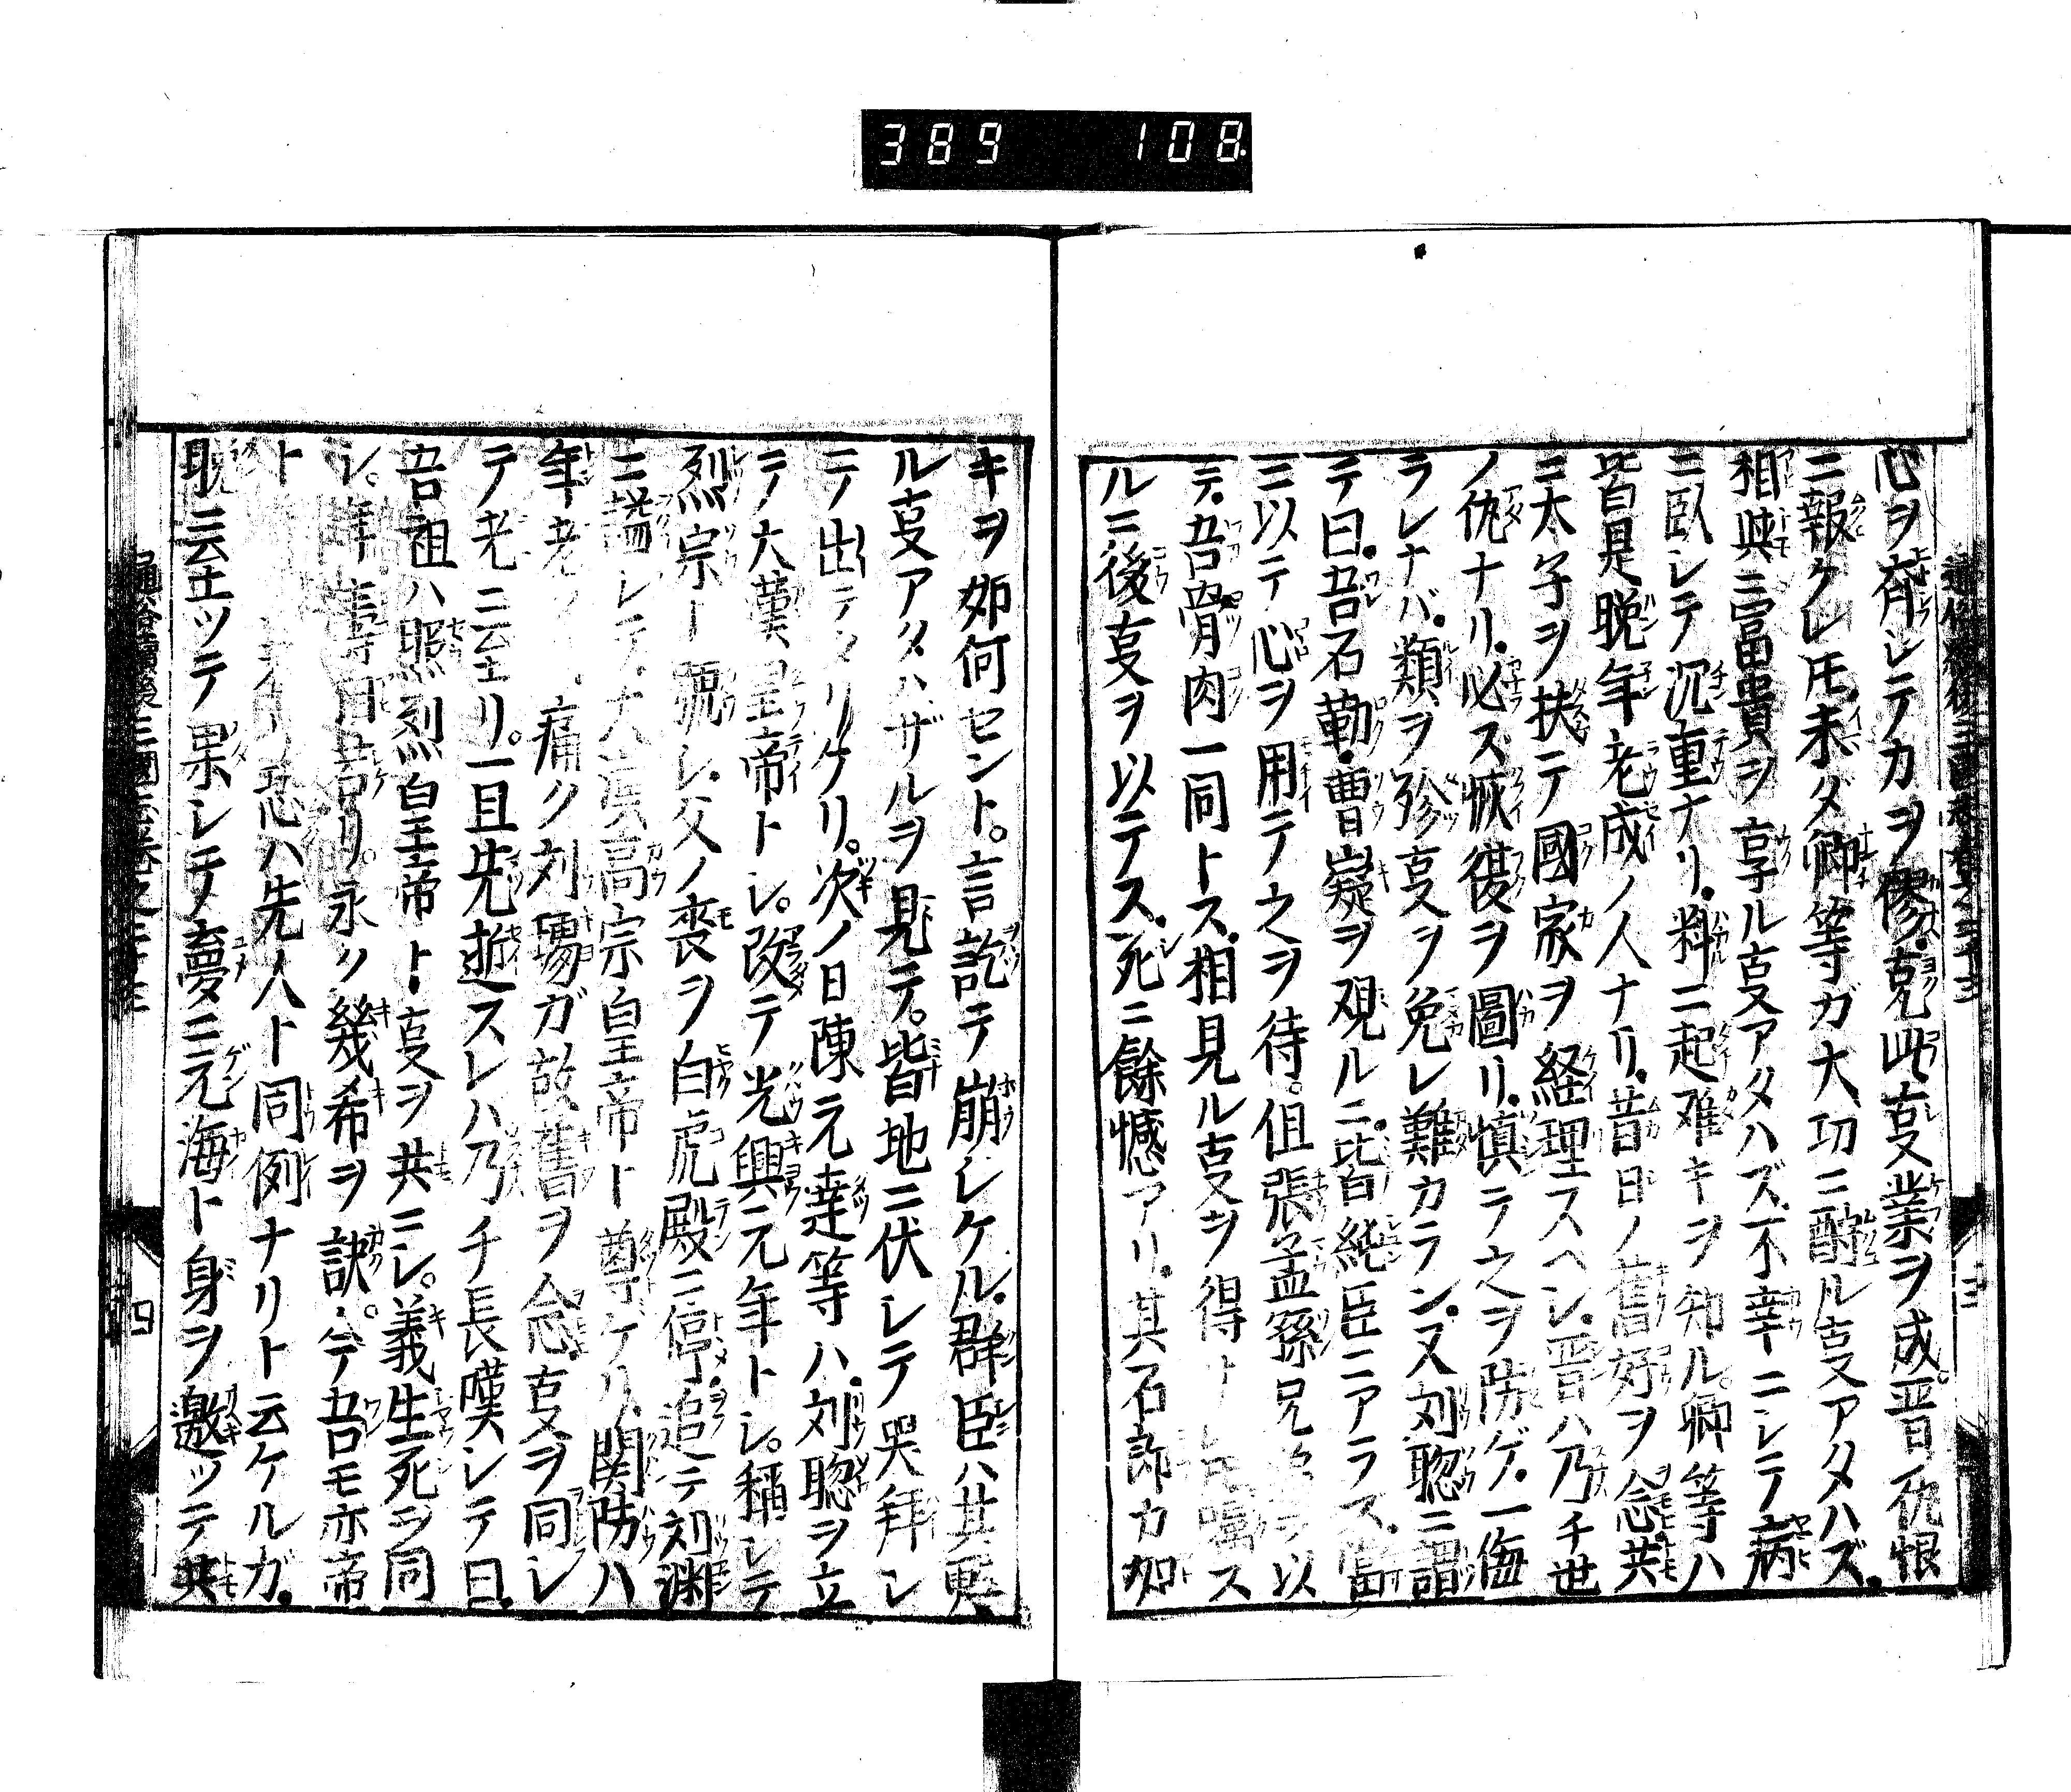 389 108
心ヲ齊シテカヲ僇克此㕝業ヲ成晋仇恨
ニ報ケレ𪜈未ダ卿等ガ大功ニ酧ル㕝アタハズ
相與ニ冨貴ヲ享ル㕝アタハズ不幸ニシテ病
ニ臥シテ沉重ナリ料ニ起难キヲ知ル卿等ハ
皆是晩年老成ノ人ナリ昔日ノ舊好ヲ念共
ニ太子ヲ扶テ國家ヲ経理スヘシ晋ハ乃チ世
ノ仇ナリ必ズ恢復ヲ圖リ慎テ之ヲ防ゲ一侮
ラレナバ類ヲ殄㕝ヲ免レ難カラン又刘聡ニ謂
テ曰吾石勒曹嶷ヲ观ルニ皆純臣ニアラス當
ニ以テ心ヲ用テ之ヲ待但張孟孫兄ヲ以
テ吾骨肉一同トス相見ル㕝ヲ得囑ス
ルニ後㕝ヲ以テス死ニ餘憾アリ其石部カ如
キヲ如何セント言訖テ崩シケル群臣ハ其
ル㕝アタハザルヲ見テ皆地ニ伏シテ哭拜シ
テ出テリケリ次ノ日陳元達等ハ刘聡ヲ立
テ大漢皇帝トシ改テ光興元年トシ稱シテ
烈宗ト號シ父ノ喪ヲ白虎殿ニ停追テ刘渊
ニ謚シテ大漢高宗皇帝ト尊ケリ関防ハ
年老 痛ク刘璩ガ故舊ヲ念㕝ヲ同シ
テ老ニ至リ一旦先逝スレハ乃チ長嘆シテ曰
吾祖ハ昭烈皇帝ト㕝ヲ共ニシ義生死ヲ同
シ年壽自若リ永ク幾希ヲ訣テ吾モ亦帝
ト 恐ハ先人ト同例ナリト云ケルガ
晩ニ至ツテ果シテ夢ニ元海ト身ヲ邀ツテ共
通俗續後三國志卷之二十三
四